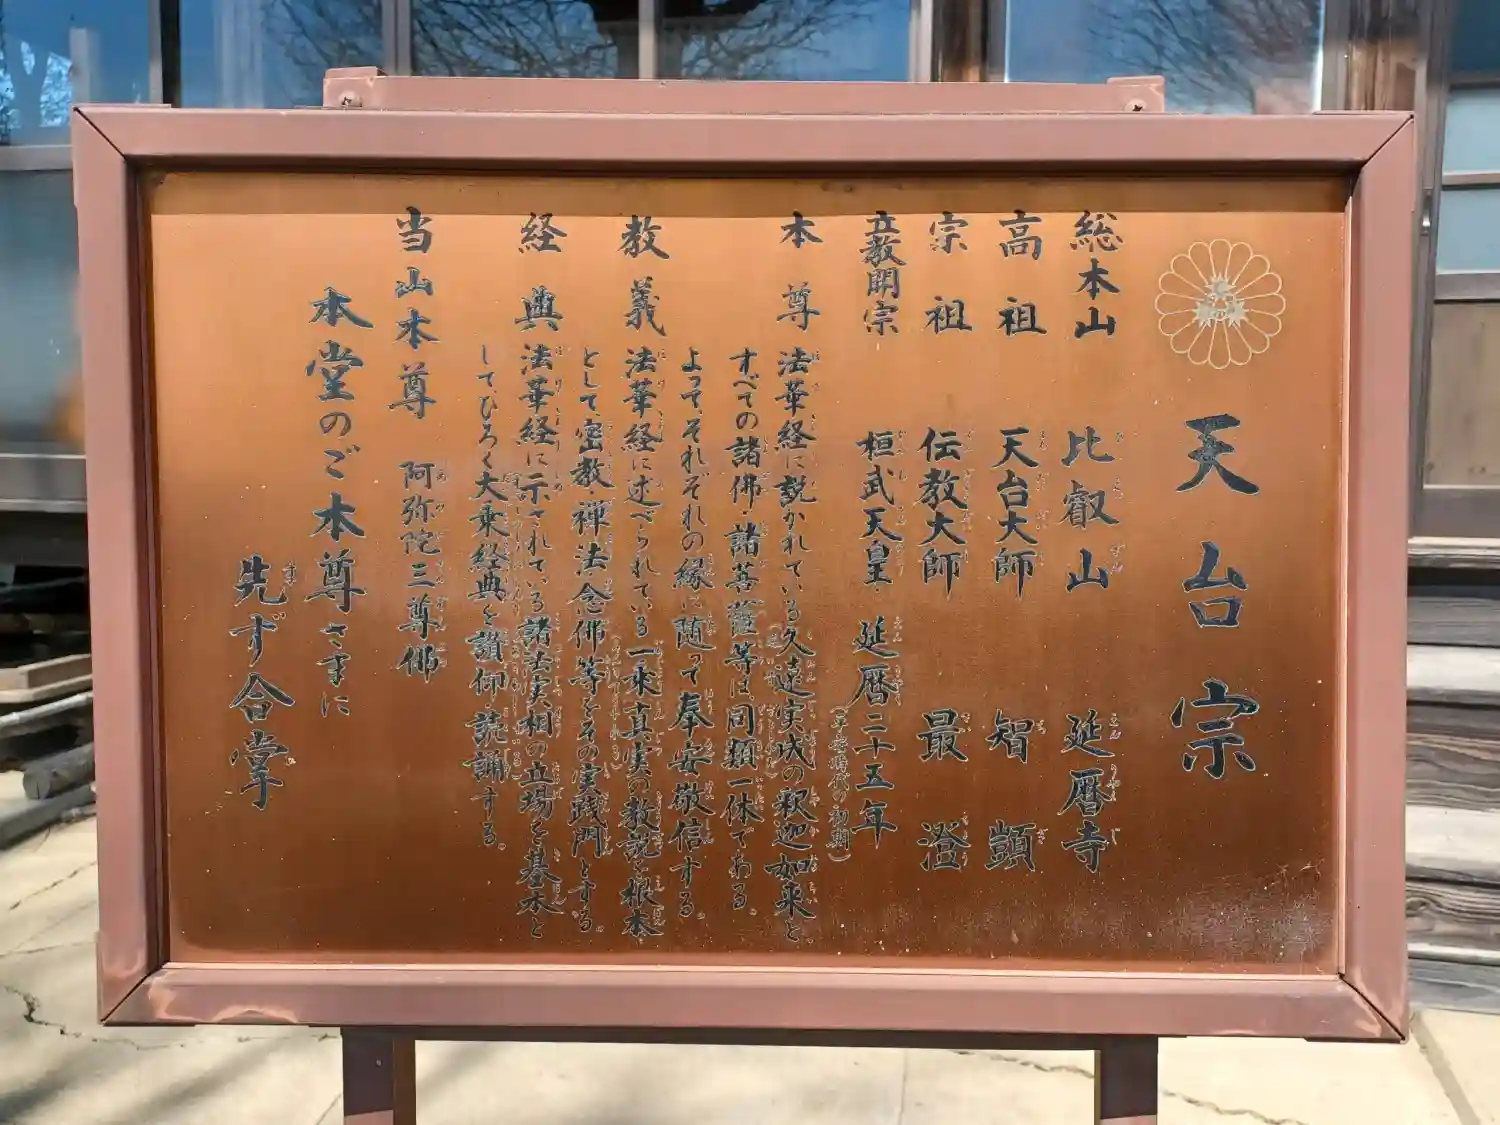 天台宗
総本山 比叡山 延暦寺
高祖 天台大師 智顗
宗祖 伝教大師 最澄
立教開宗 桓武天皇 延暦二十五年(平安時代の初期)
本尊 法華経に説かれている久遠実成の釈迦如来と、
すべての諸佛・諸菩薩等は同類一体である。
よって、それぞれの縁に随って奉安敬信する。
教義 法華経に述べられている一乗真実の教説を根本
として、密教・禅法・念佛等をその実践門とする。
経典 法華経に示されている諸法実相の立場を基本と
して、ひろく大乗経典を讃仰・読誦する。
当山本尊 阿弥陀三尊佛
本堂のご本尊さまに
先ず合掌